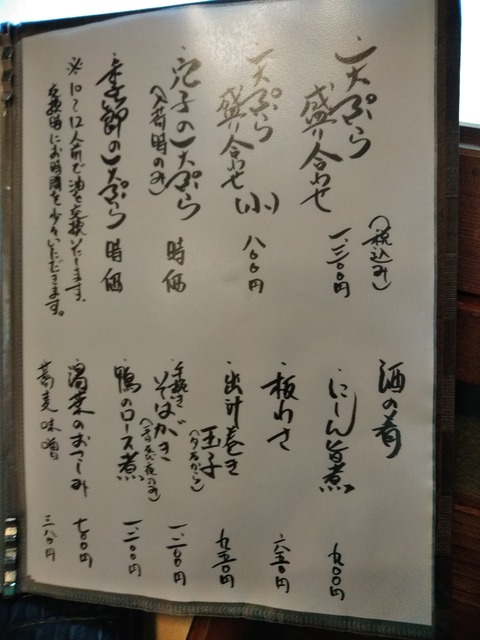 (税込み)
・天ぷら
盛り合わせ 一、三〇〇円
・天ぷら
盛り合わせ(小) 八〇〇円
・穴子の天ぷら 時価
(入荷時のみ)
・季節の天ぷら 時価
※10〜12人前で油を交換いたします。
交換時にお時間を少々いただきます。
酒の肴
・にしん旨煮 九〇〇円
・板わさ 六五〇円
・出汁巻き
玉子 九五〇円
(夕方から)
・そばがき 一、二〇〇円
・鴨のロース煮 一、二〇〇円
・湯葉のおつくり 七〇〇円
蕎麦味噌 三八〇円